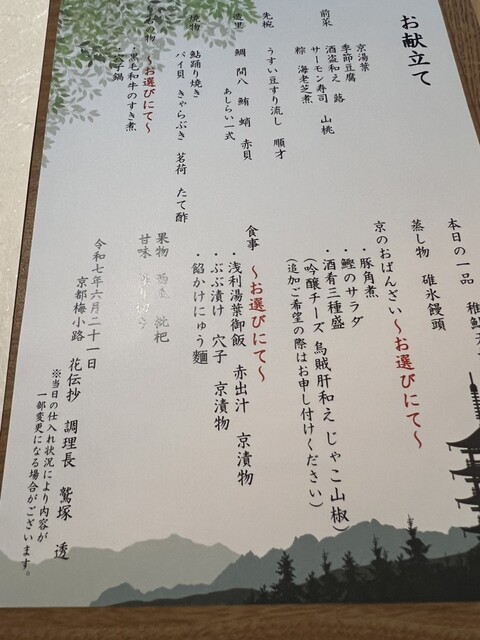 お献立て
前菜
京湯葉
季節豆腐
酒盗和え 蕗
サーモン寿司 山桃
粽 海老芝煮
先椀
うすい豆すり流し 順才
鯛 間八 鮪 蛸 赤貝
あしらい一式
鮎踊り焼き
バイ貝 きゃらぶき 茗荷 たて酢
～お選びにて～
・黒毛和牛のすき煮
・穴子鍋
本日の一品
蒸し物 碓氷饅頭
京のおばんざい～お選びにて～
・豚角煮
・鰹のサラダ
・酒肴三種盛
(吟醸チーズ 烏賊肝和え じゃこ山椒)
(追加ご希望の際はお申し付けください)
食事 ～お選びにて～
・浅利湯葉御飯 赤出汁 京漬物
・ぶぶ漬け 穴子 京漬物
・餡かけにゅう麺
果物 枇杷
甘味
令和七年六月二十一日
京都梅小路 花伝抄 調理長 鷲塚 透
※当日の仕入れ状況により内容が
一部変更になる場合がございます。